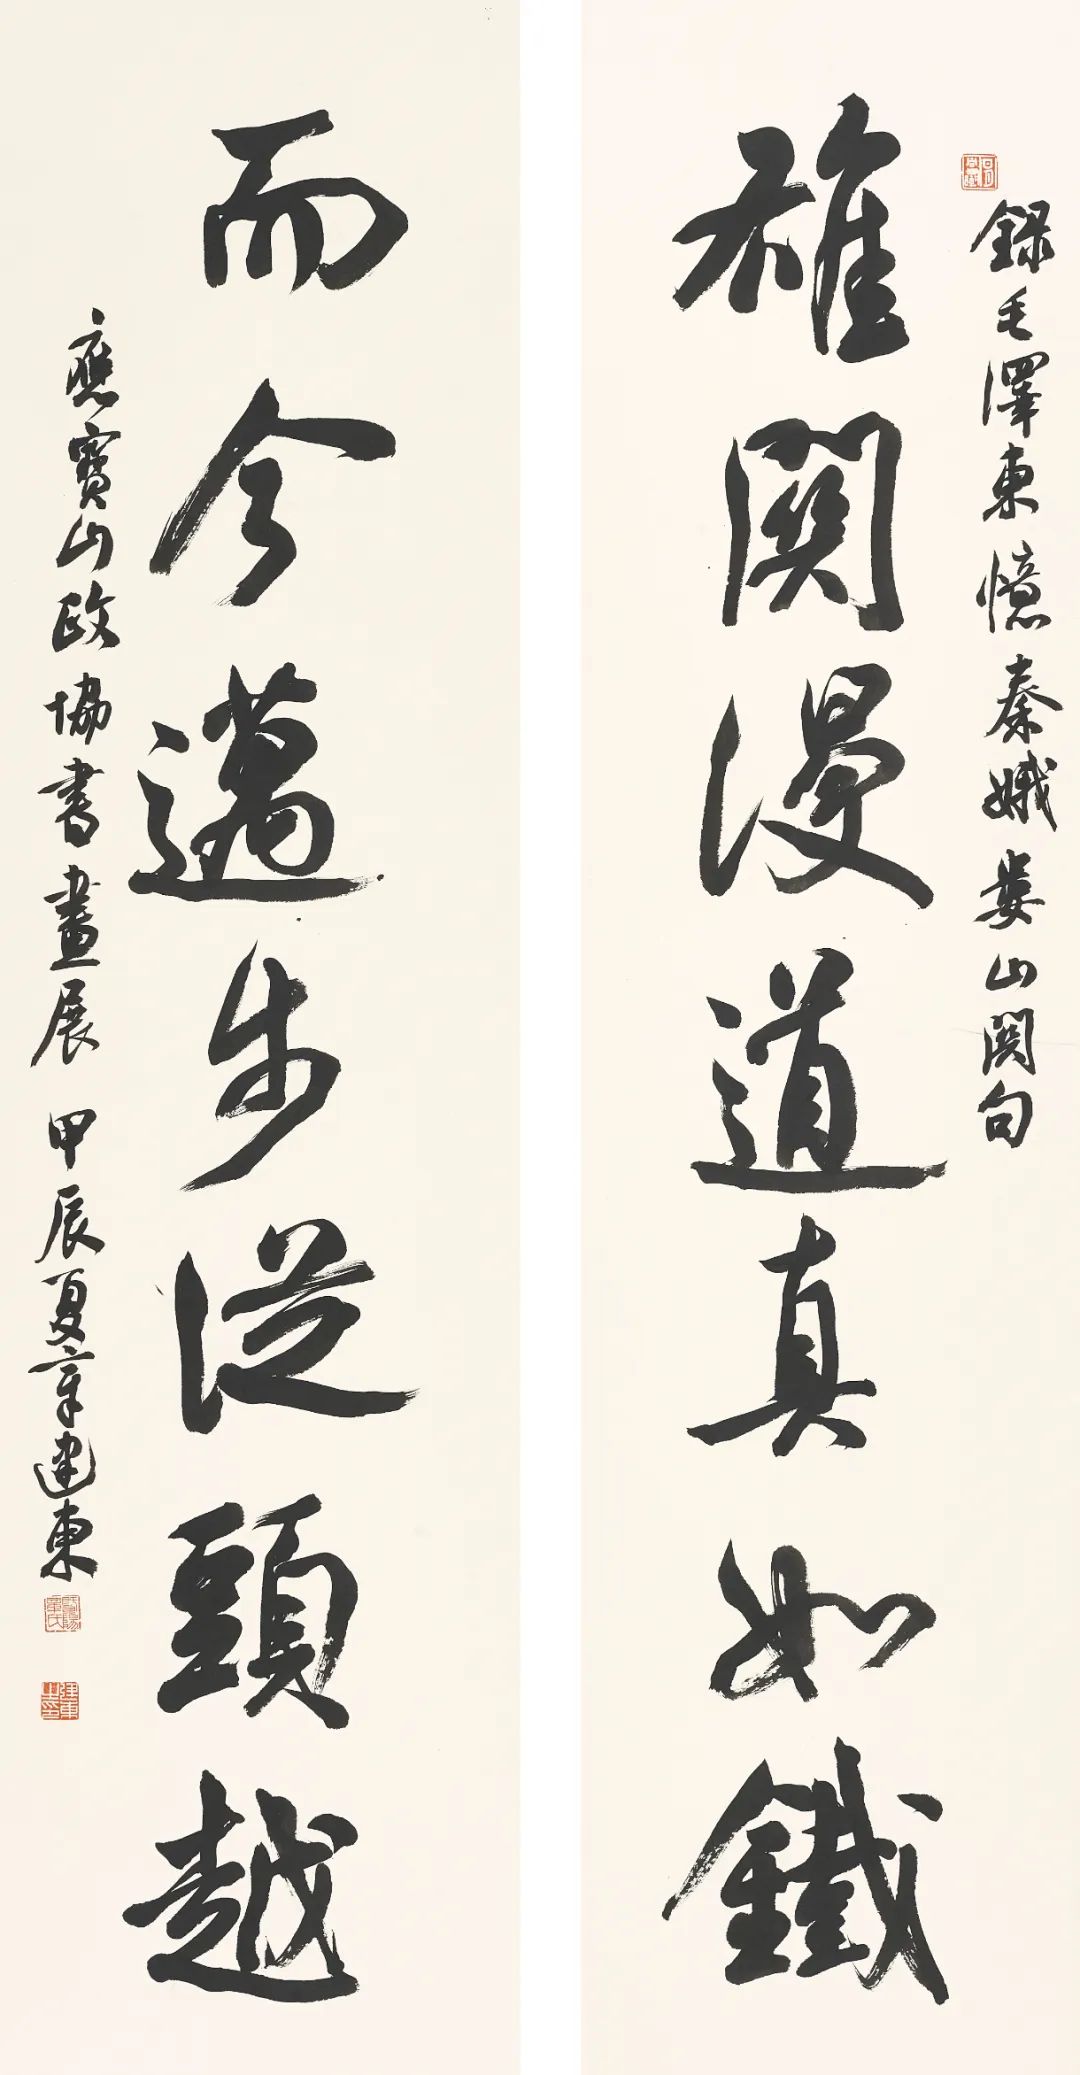 錄毛澤東憶秦娥婁山関句
雄関漫道真如鐵
而今邁步従頭越
應寶山政協書畫展 甲辰夏章建東